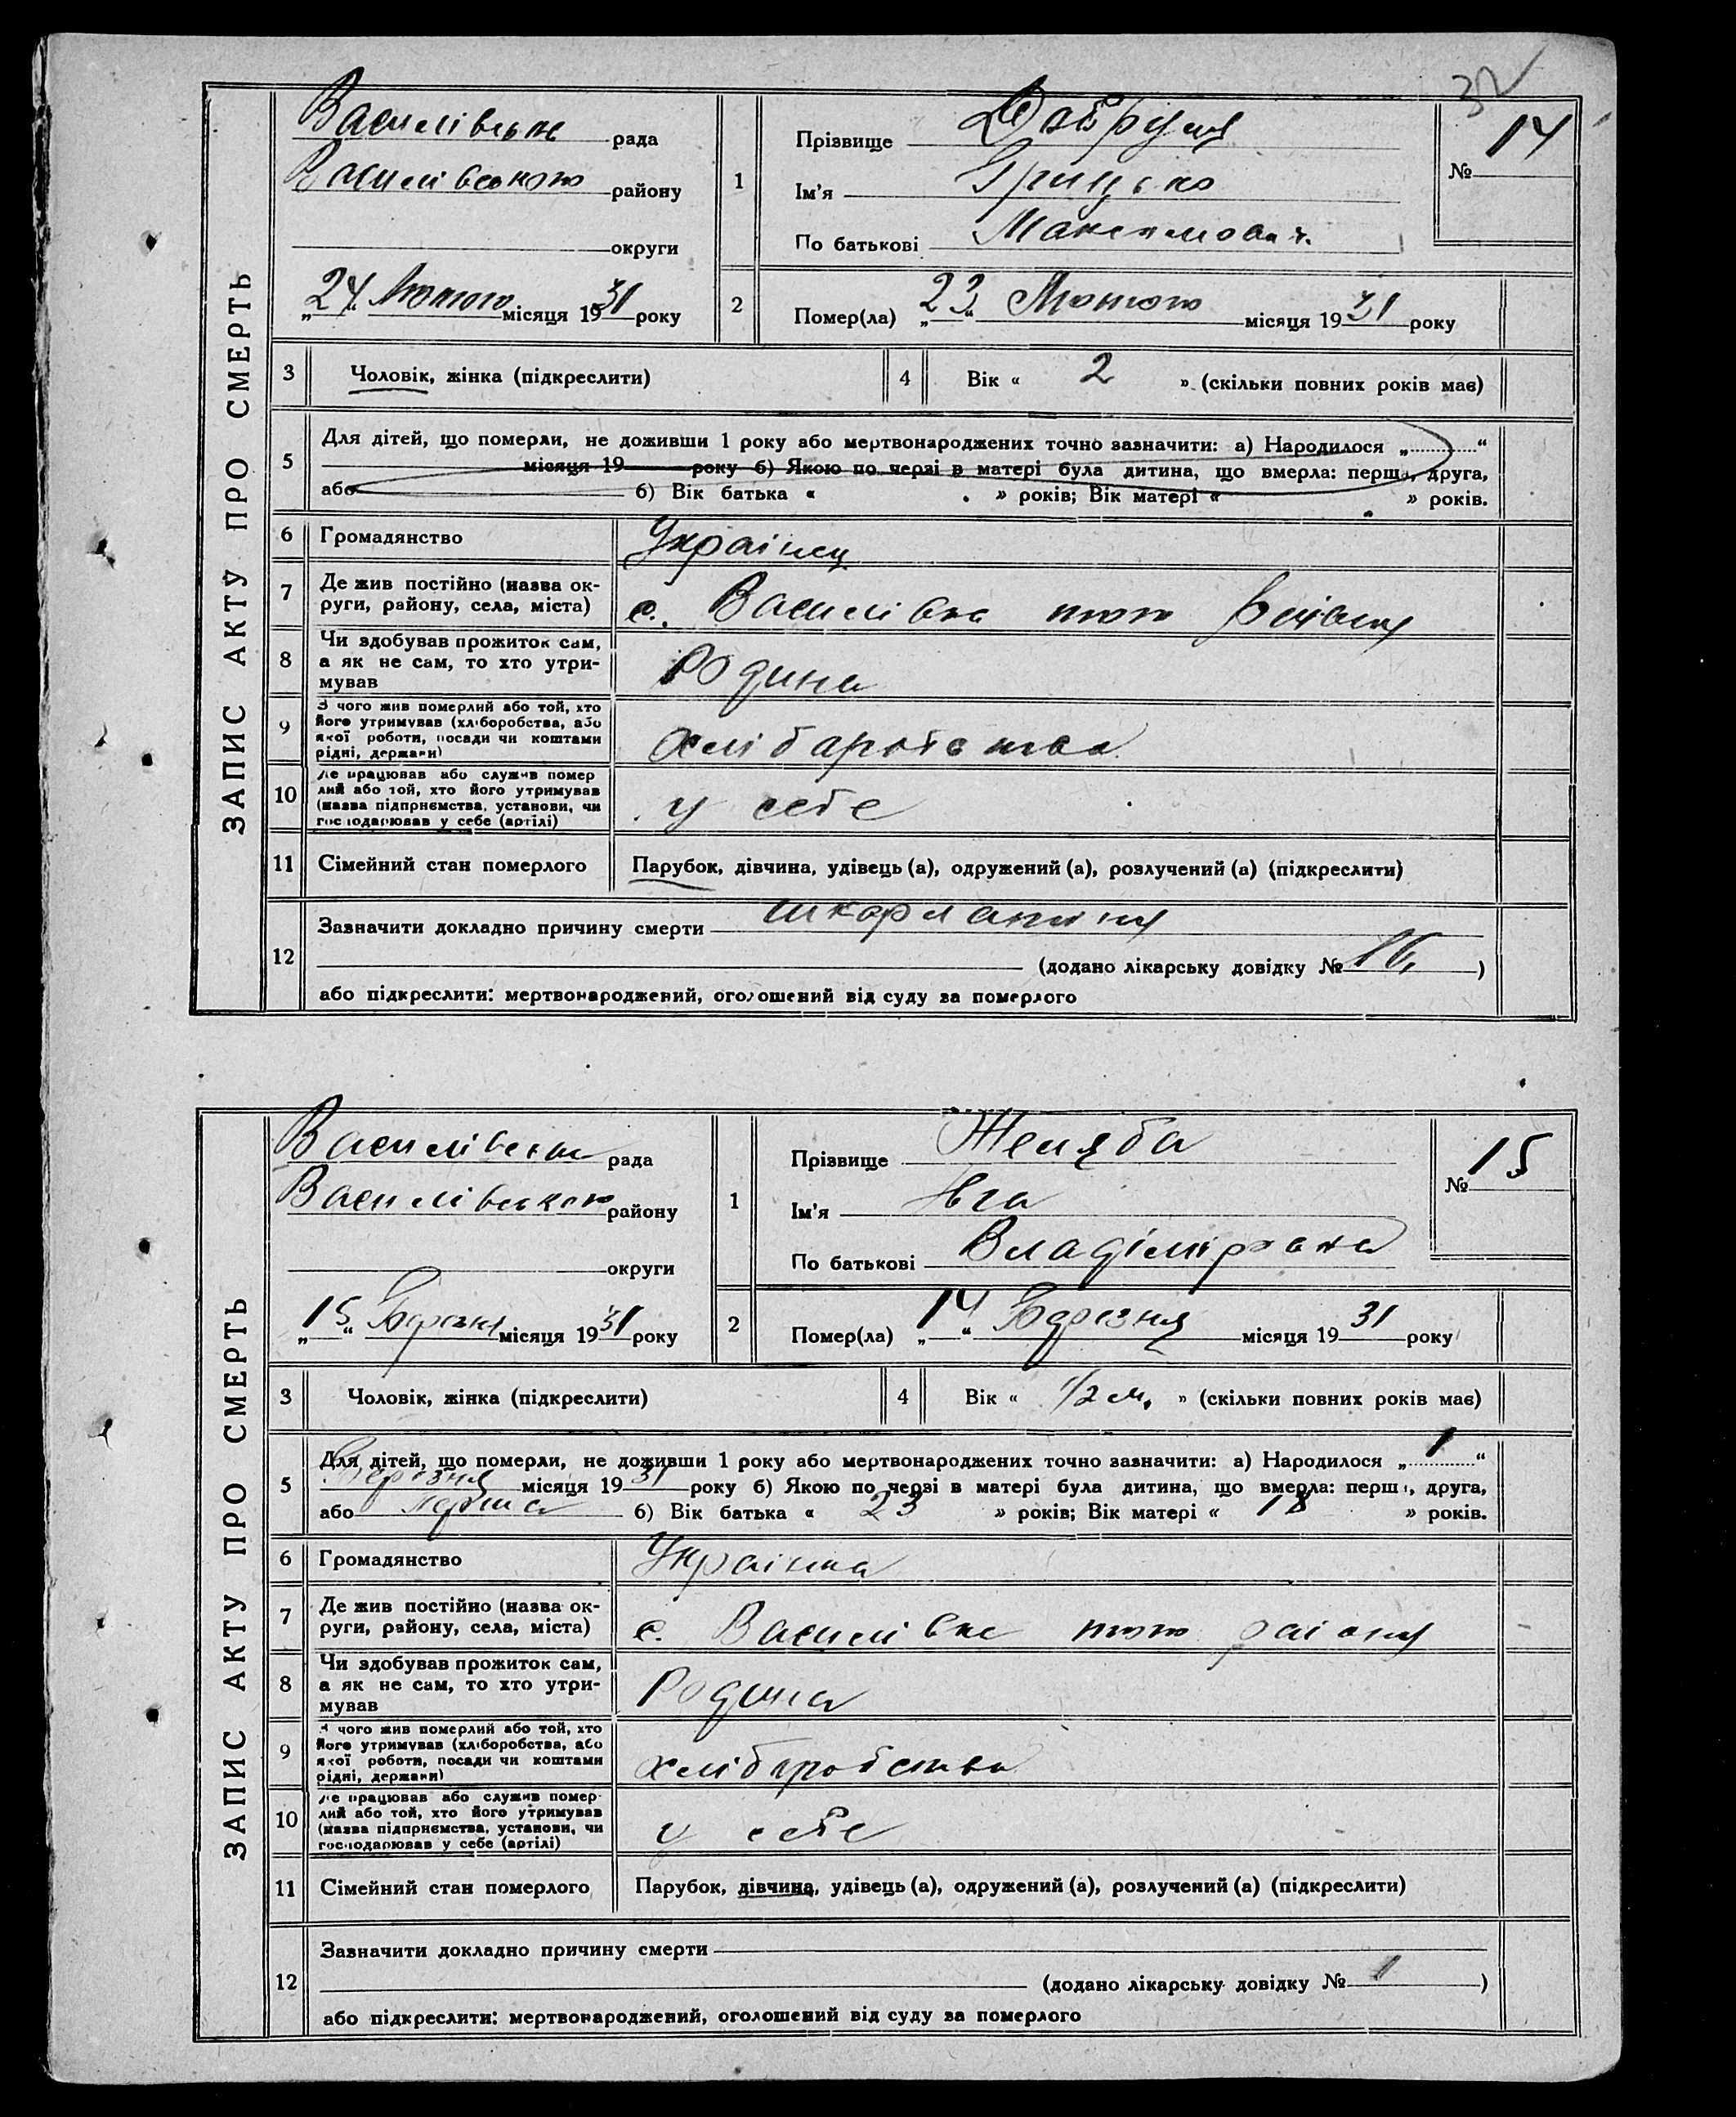 32
ЗАПИС АКТУ ПРО СМЕРТЬ
Василівська рада
Василівського району
округи
„24“ Лютого місяця 1931 року
1
Прізвище
Ім'я Грицько
По батькові Максимович.
№ 14
2
Помер(ла) „23“ Лютого місяця 1931 року
3
Чоловік, жінка (підкреслити)
4
Вік « 2 » (скільки повних років має)
5
Для дітей, що померли, не доживши 1 року або мертвонароджених точно зазначити: а) Народилося „ “
місяця 19 року б) Якою по черзі в матері була дитина, що вмерла: перша, друга,
або б) Вік батька « » років; Вік матері « » років.
6
Громадянство Українец
7
Де жив постійно (назва ок-
руги, району, села, міста) с. Василівка того
8
Чи здобував прожиток сам,
а як не сам, то хто утри-
мував Родина
9
З чого жив померлий або той, хто
його утримував (хліборобства, або
якої роботи, посади чи коштами
рідні, держави) хлібаробства
10
Де працював або служив помер
лий або той, хто його утримував
(назва підприємства, установи, чи
господарював у себе (артілі) у себе
11
Сімейний стан померлого Парубок, дівчина, удівець (а), одружений (а), розлучений (а) (підкреслити)
12
Зазначити докладно причину смерти шкарлатина
(додано лікарську довідку № 16, )
або підкреслити: мертвонароджений, оголошений від суду за померлого
ЗАПИС АКТУ ПРО СМЕРТЬ
Василівська рада
Василівського району
округи
„15“ Березня місяця 1931 року
1
Прізвище Желяба
Ім'я
По батькові Владіміровна
№ 15
2
Помер(ла) „14“ Березня місяця 1931 року
3
Чоловік, жінка (підкреслити)
4
Вік « 1/2 м. » (скільки повних років має)
5
Для дітей, що померли, не доживши 1 року або мертвонароджених точно зазначити: а) Народилося „1“
Березня місяця 1931 року б) Якою по черзі в матері була дитина, що вмерла: перша, друга,
або перша б) Вік батька « 23 » років; Вік матері « 18 » років.
6
Громадянство Українка
7
Де жив постійно (назва ок-
руги, району, села, міста) с. Василівка того району
8
Чи здобував прожиток сам,
а як не сам, то хто утри-
мував Родина
9
З чого жив померлий або той, хто
його утримував (хліборобства, або
якої роботи, посади чи коштами
рідні, держави) хлібаробства
10
Де працював або служив помер-
лий або той, хто його утримував
(назва підприємства, установи, чи
господарював у себе (артілі) у себе
11
Сімейний стан померлого Парубок, дівчина, удівець (а), одружений (а), розлучений (а) (підкреслити)
12
Зазначити докладно причину смерти
(додано лікарську довідку № 1 )
або підкреслити: мертвонароджений, оголошений від суду за померлого